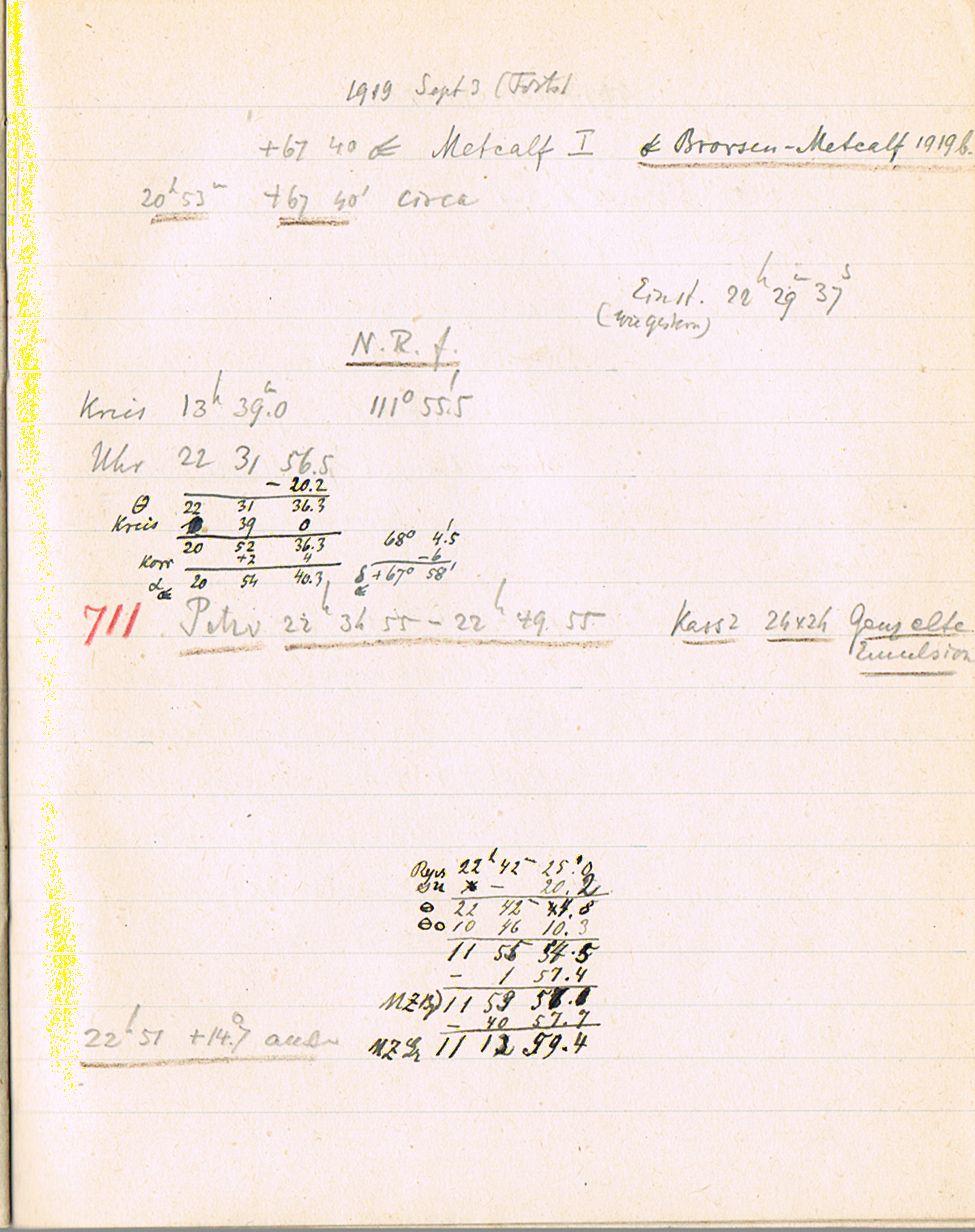 1919 Sept 3 (Forts)
+67 40 ☄ Metcalf I ☄ Brorsen-Metcalf 1919b.
20ʰ53ᵐ +67 40' circa
Einst. 22ʰ 29ᵐ 37ˢ
(wie gestern)
N.R.f.
Kreis 13ʰ 39ᵐ.0 111° 55.'5
Uhr 22 31 56.5
- 20.2
θ 22 31 36.3
Kreis 39 0
20 52 36.3 68° 4.'5
Korr +2 4 -6
α☄ 20 54 40.3 δ☄ +67° 58'
711 Petzv 22ʰ 34 55 - 22ʰ 49 55 Kass2 24x24 Ganz alte
Emulsion
22ʰ 42ᵐ 25ˢ.0
- 20.2
θ 22 42 4.8
θo 10 46 10.3
11 55 54.5
- 1 57.4
MZBg 11 53
- 40 57.7
22ʰ 51 +14.°7
MZ Gr 11 59.4